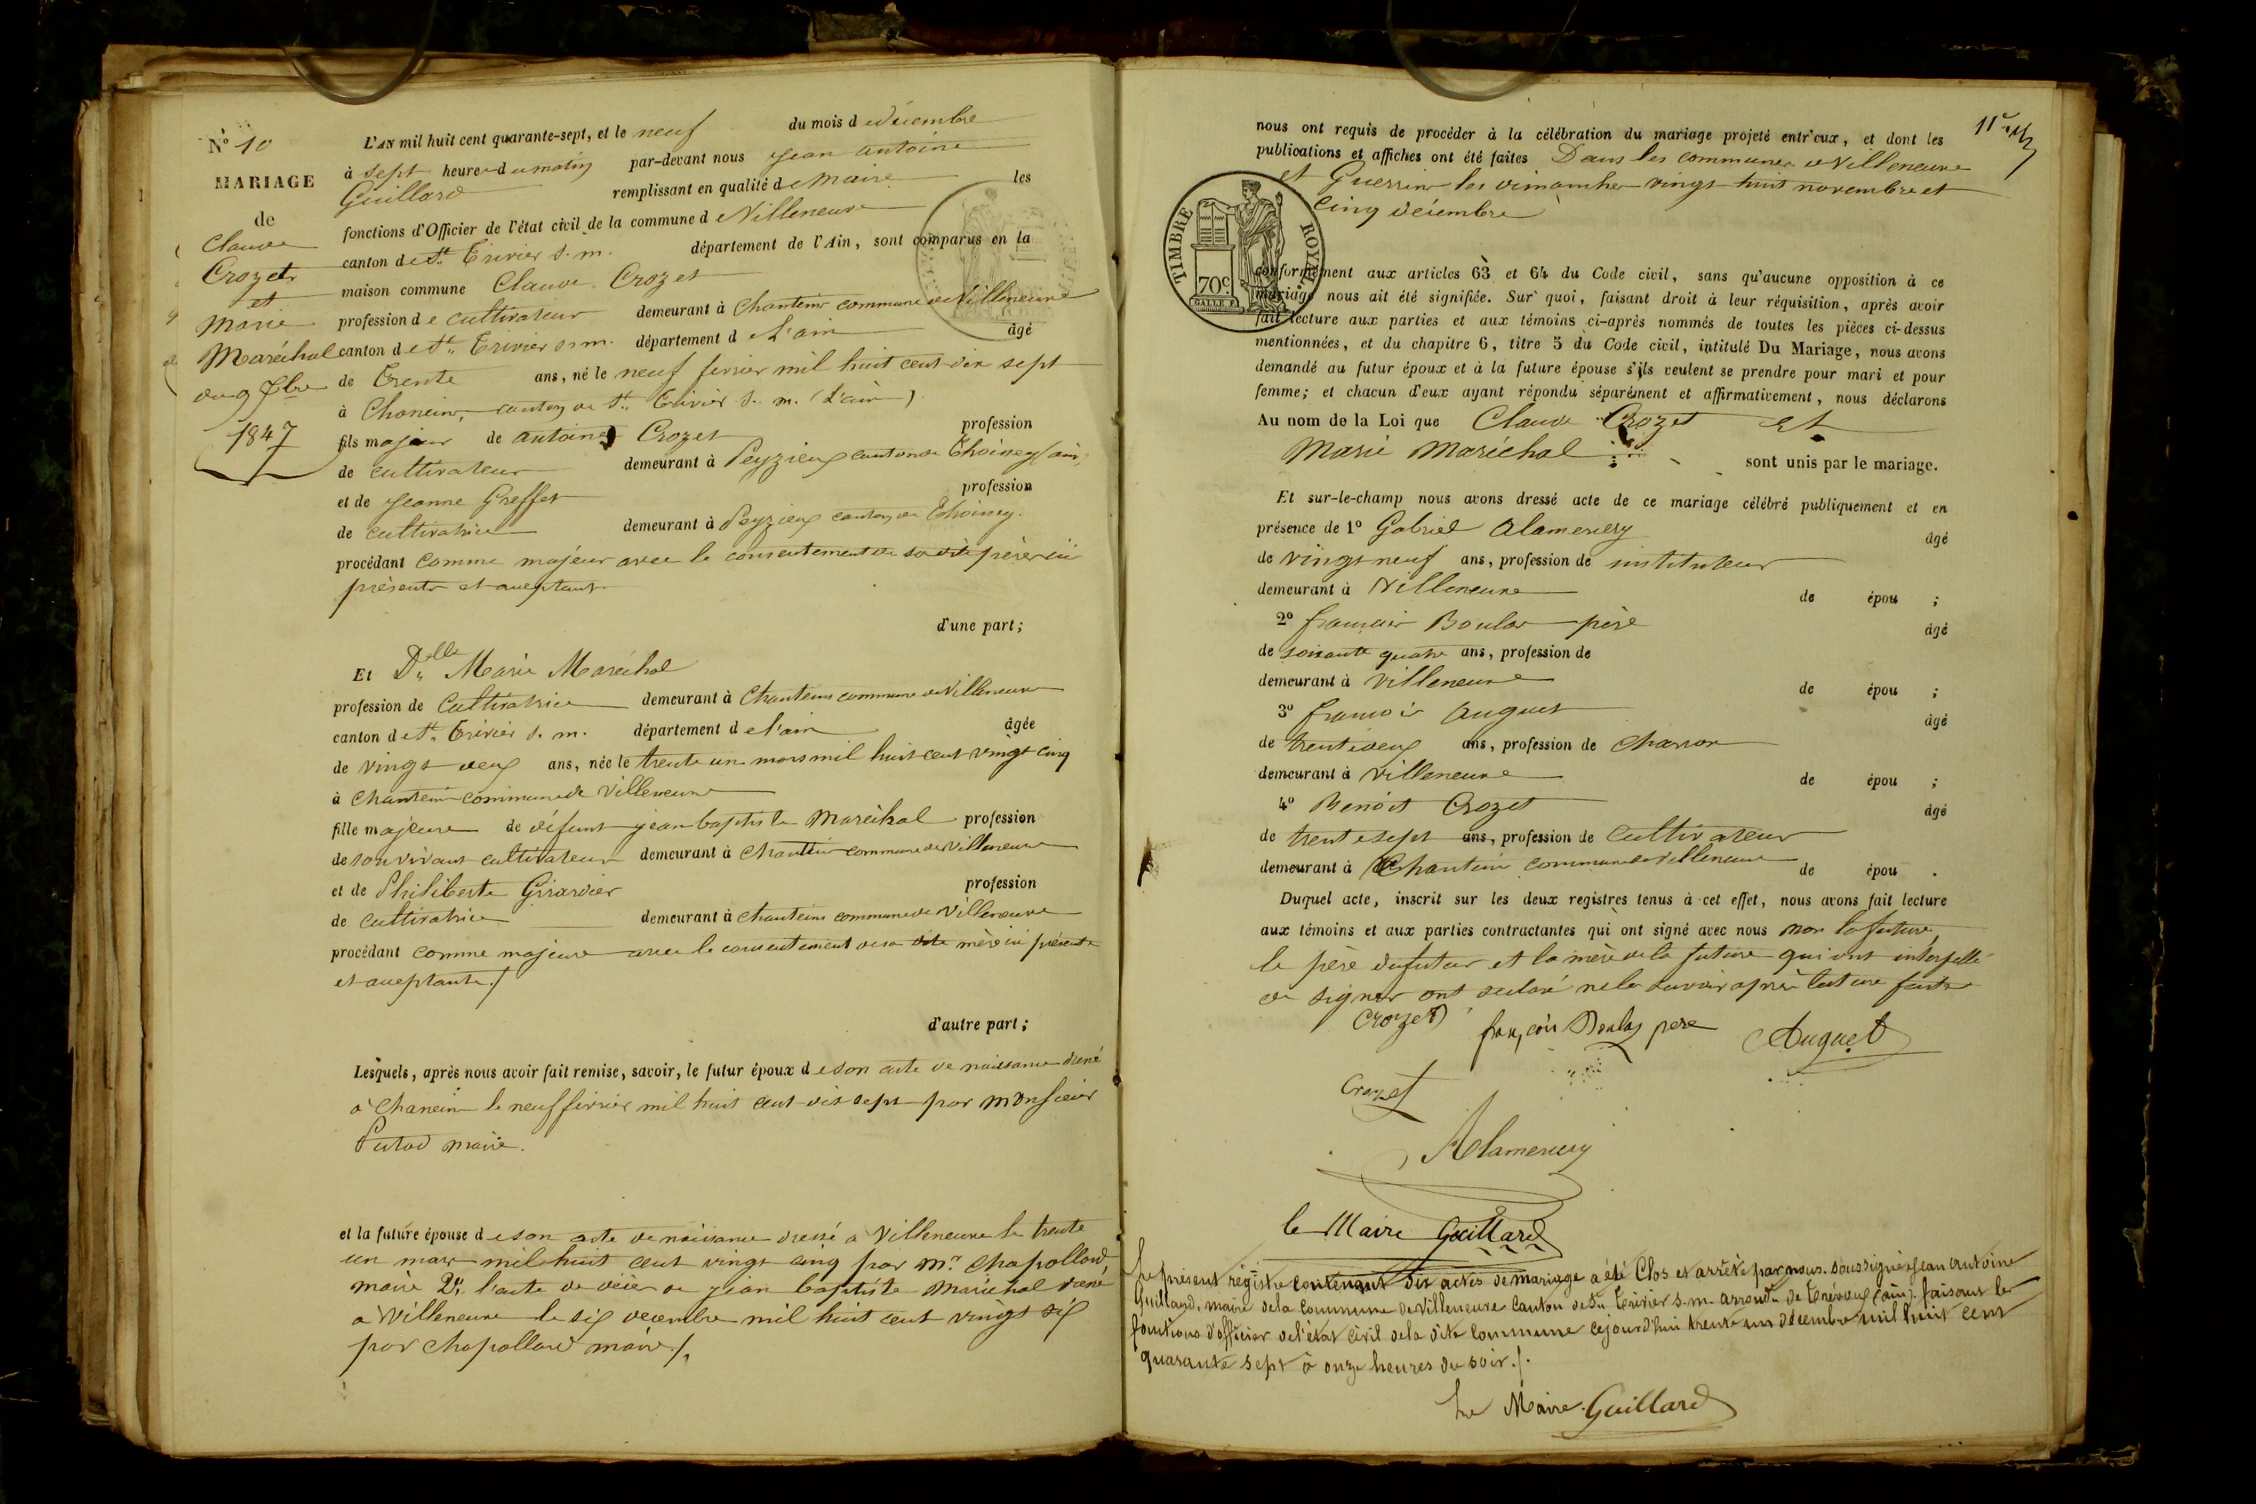 N° 10
MARIAGE
de
Claude
Crozet
et
Marie
Maréchal
du 9 Xbre
1847
L'AN mil huit cent quarante-sept, et le neuf du mois de décembre
à sept heures du matin par-devant nous Jean Antoine
Guillard remplissant en qualité de Maire les
fonctions d'Officier de l'état civil de la commune de Villeneuve
canton de St. Trivier s. m. département de l'Ain, sont comparus en la
maison commune Claude Crozet
profession de cultivateur demeurant à Chanteins commune de Villeneuve
canton de St. Trivier s. m. département de L'ain âgé
de Trente ans, né le neuf fevrier mil huit cent dix sept
à Chanein, canton de St. Trivier s. m. (L'ain)
fils majeur de antoine Crozet profession
de cultivateur demeurant à Peyzieux canton de Thoissey (ain)
et de Jeanne Greffet profession
de cultivatrice demeurant à Peyzieux canton de Thoissey.
procédant comme majeur avec le consentement de sa dite père ici
présents et acceptant
d'une part;
Et Dlle Marie Maréchal
profession de Cultivatrice demeurant à Chanteins commune de Villeneuve
canton de St. Trivier s. m. département de l'ain âgée
de vingt deux ans, née le trente un mars mil huit cent vingt cinq
à Chantein commune de Villeneuve
fille majeure de défunt jean baptiste Maréchal profession
de son vivant cultivateur demeurant à Chantein commune de Villeneuve
et de Philiberte Girardier profession
de Cultivatrice demeurant à Chanteins commune de Villeneuve
procédant comme majeure avec le consentement de sa dite mère ici présente
et acceptante ./
d'autre part;
Lesquels, après nous avoir fait remise, savoir, le futur époux de son acte de naissance dressé
à Chanein le neuf février mil huit cent dix sept par Monsieur
Putod maire.
et la future épouse de son acte de naissance dressé a Villeneuve le trente
un mars mil huit cent vingt cinq par Mr. Chapolard
maire 2° l'acte de décès de jean baptiste Maréchal dressé
a Villeneuve le six decembre mil huit cent vingt six
par Chapollard maire ./.
nous ont requis de procéder à la célébration du mariage projeté entr'eux, et dont les
publications et affiches ont été faites Dans les communes de Villeneuve
et Guerrein les dimanches vingt huit novembre et
Cinq décembre
TIMBRE ROYAL
70c
conformément aux articles 63 et 64 du Code civil, sans qu'aucune opposition à ce
mariage nous ait été signifiée. Sur quoi, faisant droit à leur réquisition, après avoir
fait lecture aux parties et aux témoins ci-après nommés de toutes les pièces ci-dessus
mentionnées, et du chapitre 6, titre 5 du Code civil, intitulé Du Mariage, nous avons
demandé au futur époux et à la future épouse s'ils veulent se prendre pour mari et pour
femme; et chacun d'eux ayant répondu séparément et affirmativement, nous déclarons
Au nom de la Loi que Claude Crozet et
Marie Maréchal sont unis par le mariage.
Et sur-le-champ nous avons dressé acte de ce mariage célébré publiquement et en
présence de 1° Gabriel Alamercery âgé
de vingt neuf ans, profession de instituteur
demeurant à Villeneuve de épou ;
2° françois Boulas père âgé
de soixante quatre ans, profession de
demeurant à Villeneuve de épou ;
3° françois Auguet âgé
de trente deux ans, profession de charron
demeurant à Villeneuve de épou ;
4° Benoît Crozet âgé
de trente sept ans, profession de Cultivateur
demeurant à Chantein commune de Villeneuve de épou .
Duquel acte, inscrit sur les deux registres tenus à cet effet, nous avons fait lecture
aux témoins et aux parties contractantes qui ont signé avec nous non la future,
le père du futur et la mère de la future qui ont interpellé
de signer ont déclaré ne le savoir après lecture faite
Crozet françois Boulas pere Auguet
Crozet
Alamercery
le Maire Guillard
Le présent régistre contenant dix actes de mariage a été Clos et arrêté par nous soussigné Jean Antoine
Guillard, maire de la Commune de Villeneuve Canton de St. Trivier s. m. arrondt. de Trévoux (ain). faisant les
fonctions d'officier de l'état civil de la dite commune cejourd'hui trente un décembre mil huit cent
quarante sept à onze heures du soir ./.
Le Maire Guillard